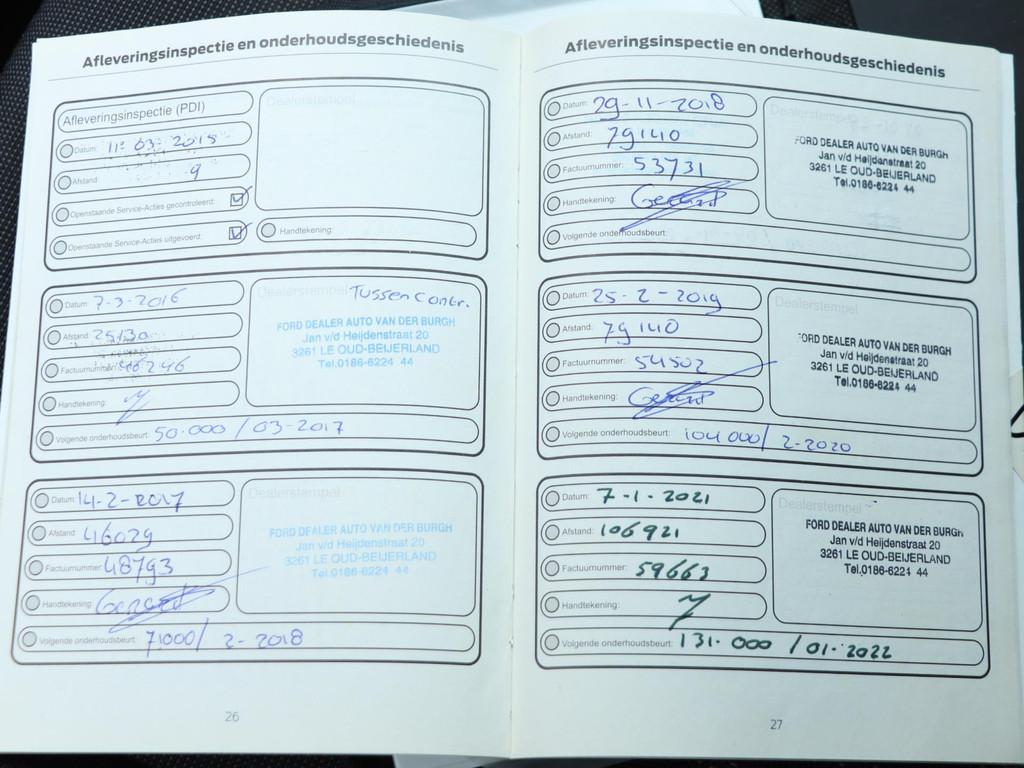 Afleveringsinspectie en onderhoudsgeschiedenis
Afleveringsinspectie (PDI)
Dealerstempel
Datum: 11-03-2015
Afstand: 9
Openstaande Service-Acties gecontroleerd:
Openstaande Service-Acties uitgevoerd:
Handtekening:
Datum: 7-3-2016
Dealerstempel Tussen contr.
Afstand: 25130
FORD DEALER AUTO VAN DER BURGH
Jan v/d Heijdenstraat 20
3261 LE OUD-BEIJERLAND
Tel.0186-6224 44
Factuurnummer: 46246
Handtekening:
Volgende onderhoudsbeurt: 50.000 / 03-2017
Datum: 14-2-2017
Dealerstempel
Afstand: 46029
FORD DEALER AUTO VAN DER BURGH
Jan v/d Heijdenstraat 20
3261 LE OUD-BEIJERLAND
Tel.0186-6224 44
Factuurnummer: 48793
Handtekening:
Volgende onderhoudsbeurt: 71000/ 2-2018
26
Afleveringsinspectie en onderhoudsgeschiedenis
Datum: 29-11-2018
Dealerstempel
Afstand: 79140
FORD DEALER AUTO VAN DER BURGH
Jan v/d Heijdenstraat 20
3261 LE OUD-BEIJERLAND
Tel.0186-6224 44
Factuurnummer: 53731
Handtekening:
Volgende onderhoudsbeurt:
Datum: 25-2-2019
Dealerstempel
Afstand: 79140
FORD DEALER AUTO VAN DER BURGH
Jan v/d Heijdenstraat 20
3261 LE OUD-BEIJERLAND
Tel.0186-6224 44
Factuurnummer: 54502
Handtekening:
Volgende onderhoudsbeurt: 104000/ 2-2020
Datum: 7-1-2021
Dealerstempel
Afstand: 106921
FORD DEALER AUTO VAN DER BURGH
Jan v/d Heijdenstraat 20
3261 LE OUD-BEIJERLAND
Tel.0186-6224 44
Factuurnummer: 59663
Handtekening:
Volgende onderhoudsbeurt: 131.000 / 01-2022
27